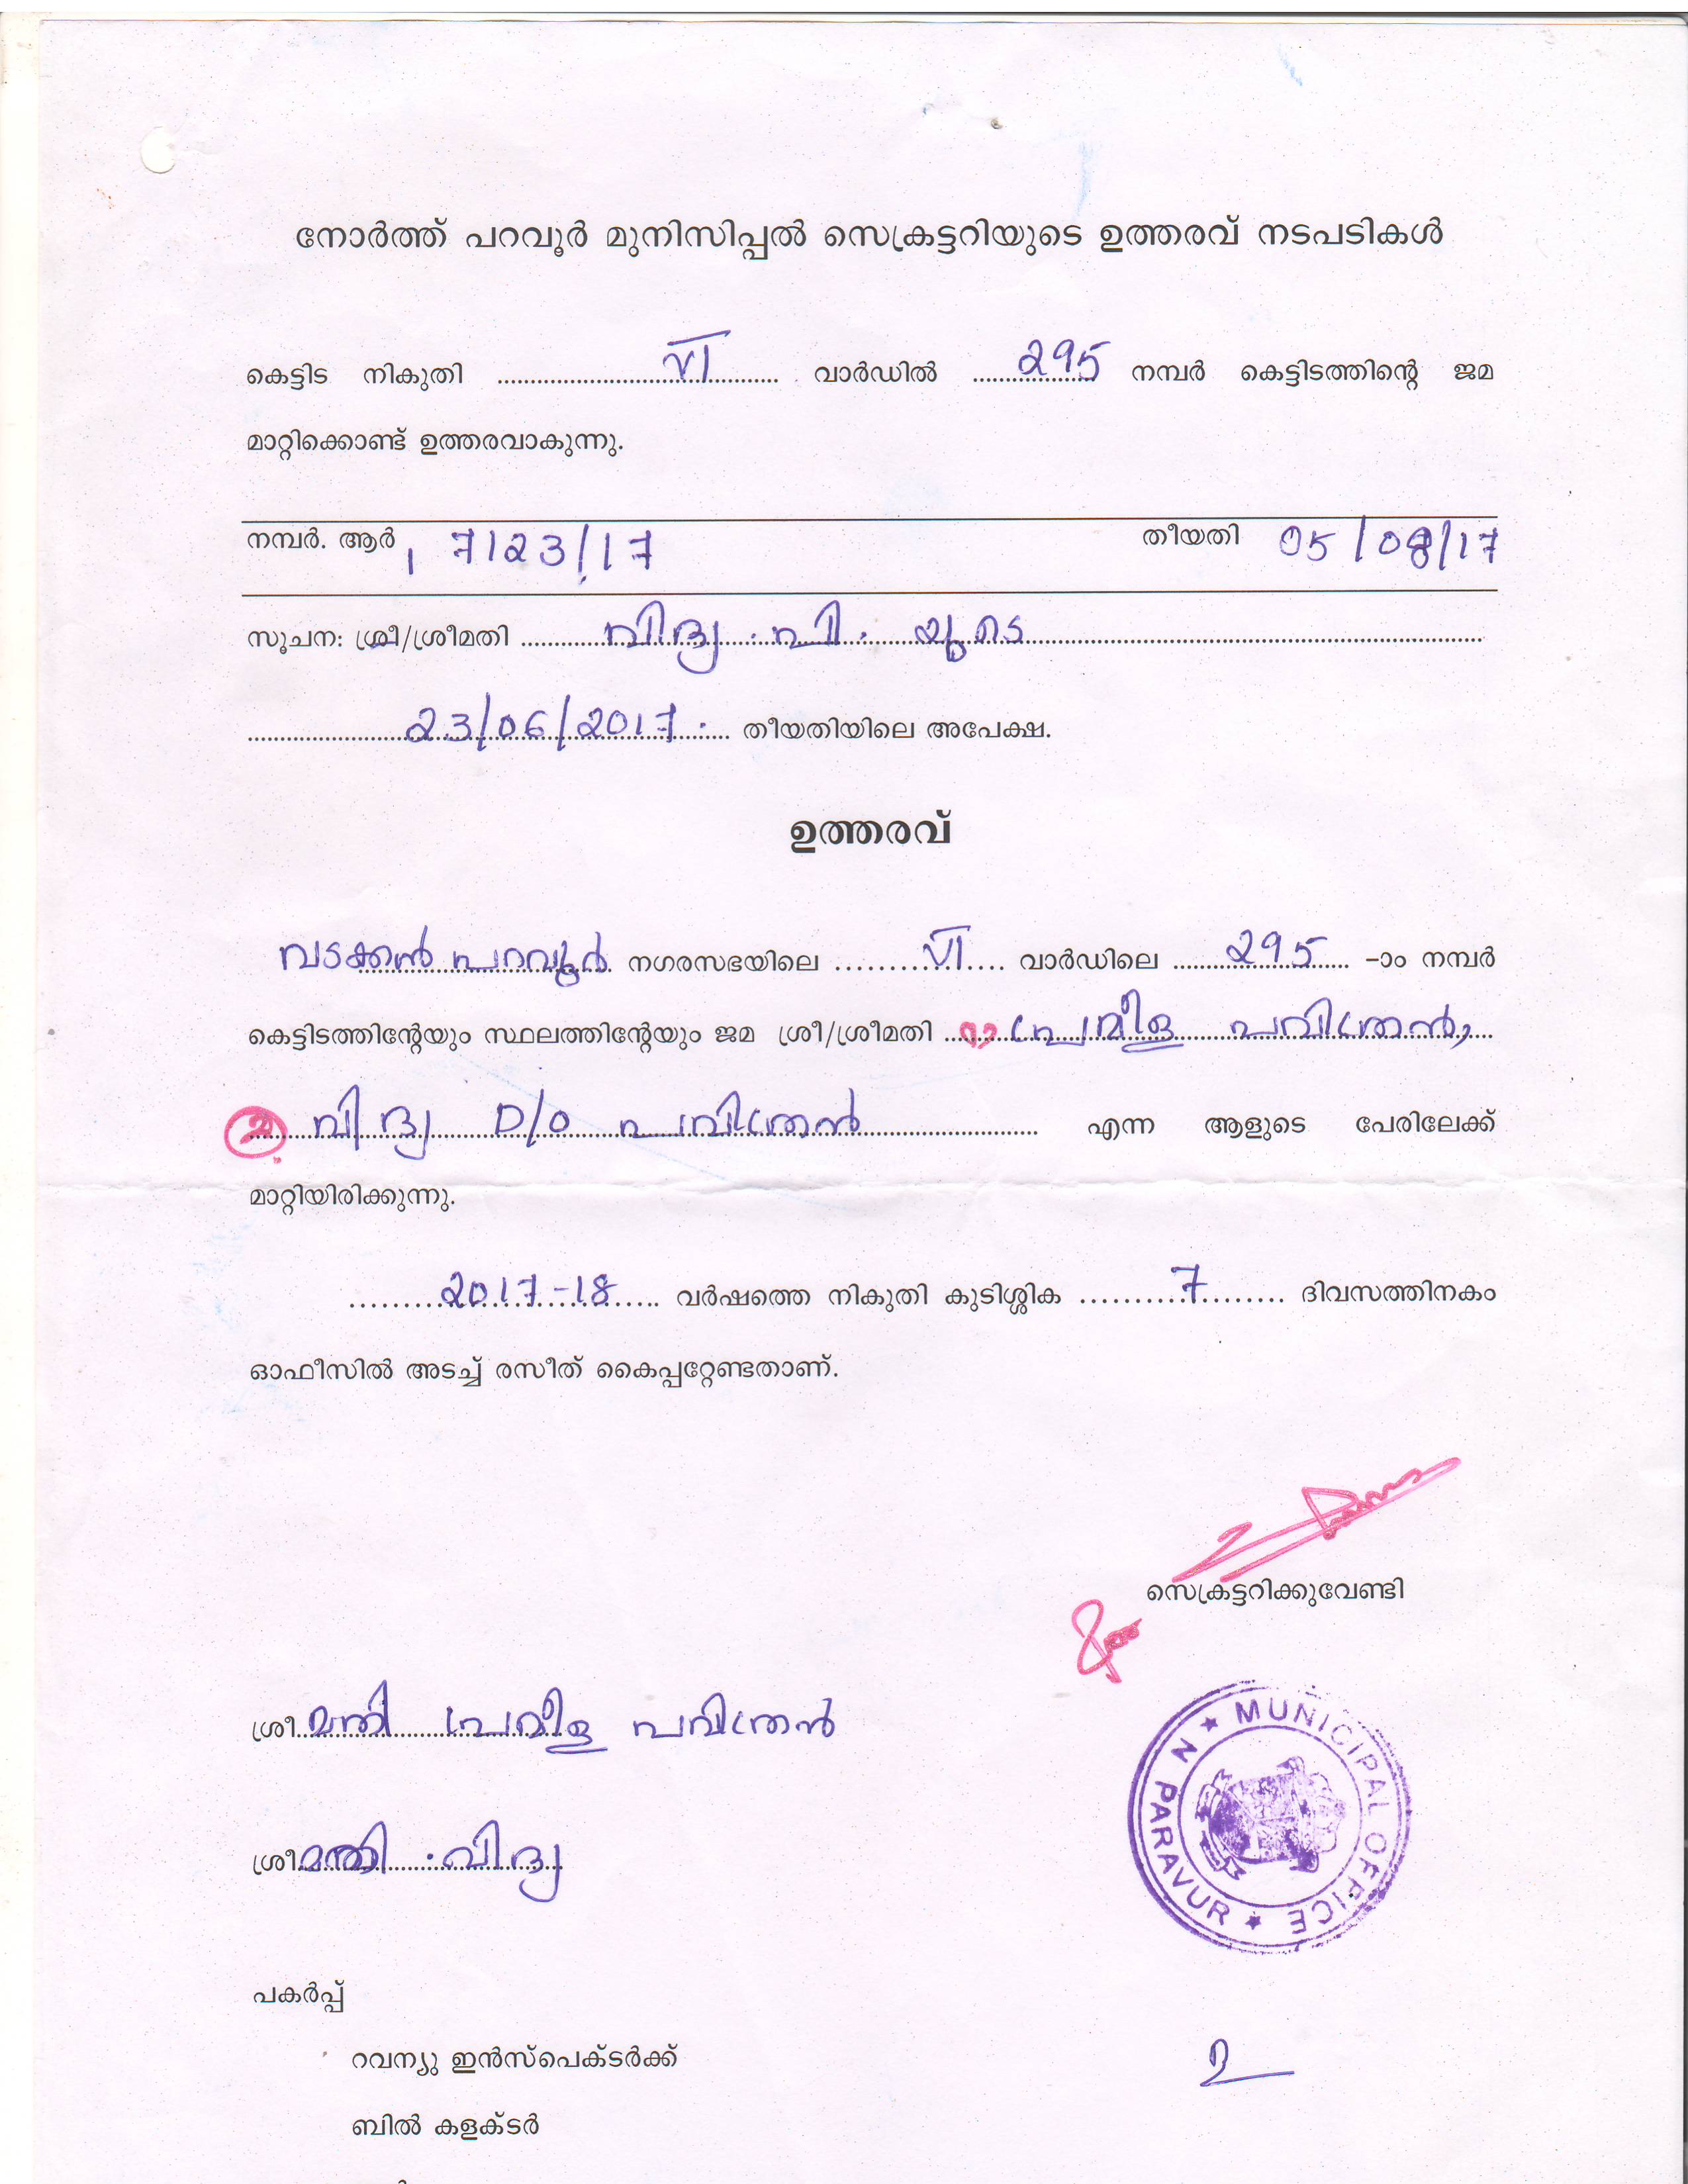 നോർത്ത് പറവൂർ മുനിസിപ്പൽ സെക്രട്ടറിയുടെ ഉത്തരവ് നടപടികൾ
കെട്ടിട നികുതി VI വാർഡിൽ 295 നമ്പർ കെട്ടിടത്തിന്റെ ജമ
മാറ്റിക്കൊണ്ട് ഉത്തരവാകുന്നു.
നമ്പർ. ആർ 1 7123/17 തീയതി 05/08/17
സൂചന: ശ്രീ/ശ്രീമതി വിദ്യ. പി. യുടെ
23/06/2017. തീയതിയിലെ അപേക്ഷ.
ഉത്തരവ്
വടക്കൻ പറവൂർ നഗരസഭയിലെ VI വാർഡിലെ 295 -ാം നമ്പർ
കെട്ടിടത്തിന്റേയും സ്ഥലത്തിന്റേയും ജമ ശ്രീ/ശ്രീമതി പ്രേമീള പവിത്രൻ,
2 വിദ്യ D/O പവിത്രൻ എന്ന ആളുടെ പേരിലേക്ക്
മാറ്റിയിരിക്കുന്നു.
2017-18 വർഷത്തെ നികുതി കുടിശ്ശിക 7 ദിവസത്തിനകം
ഓഫീസിൽ അടച്ച് രസീത് കൈപ്പറ്റേണ്ടതാണ്.
സെക്രട്ടറിക്കുവേണ്ടി
ശ്രീമതി പ്രേമീള പവിത്രൻ
ശ്രീമതി. വിദ്യ
MUNICIPAL OFFICE ★ N PARAVUR ★
പകർപ്പ്
റവന്യു ഇൻസ്പെക്ടർക്ക്
ബിൽ കളക്ടർ